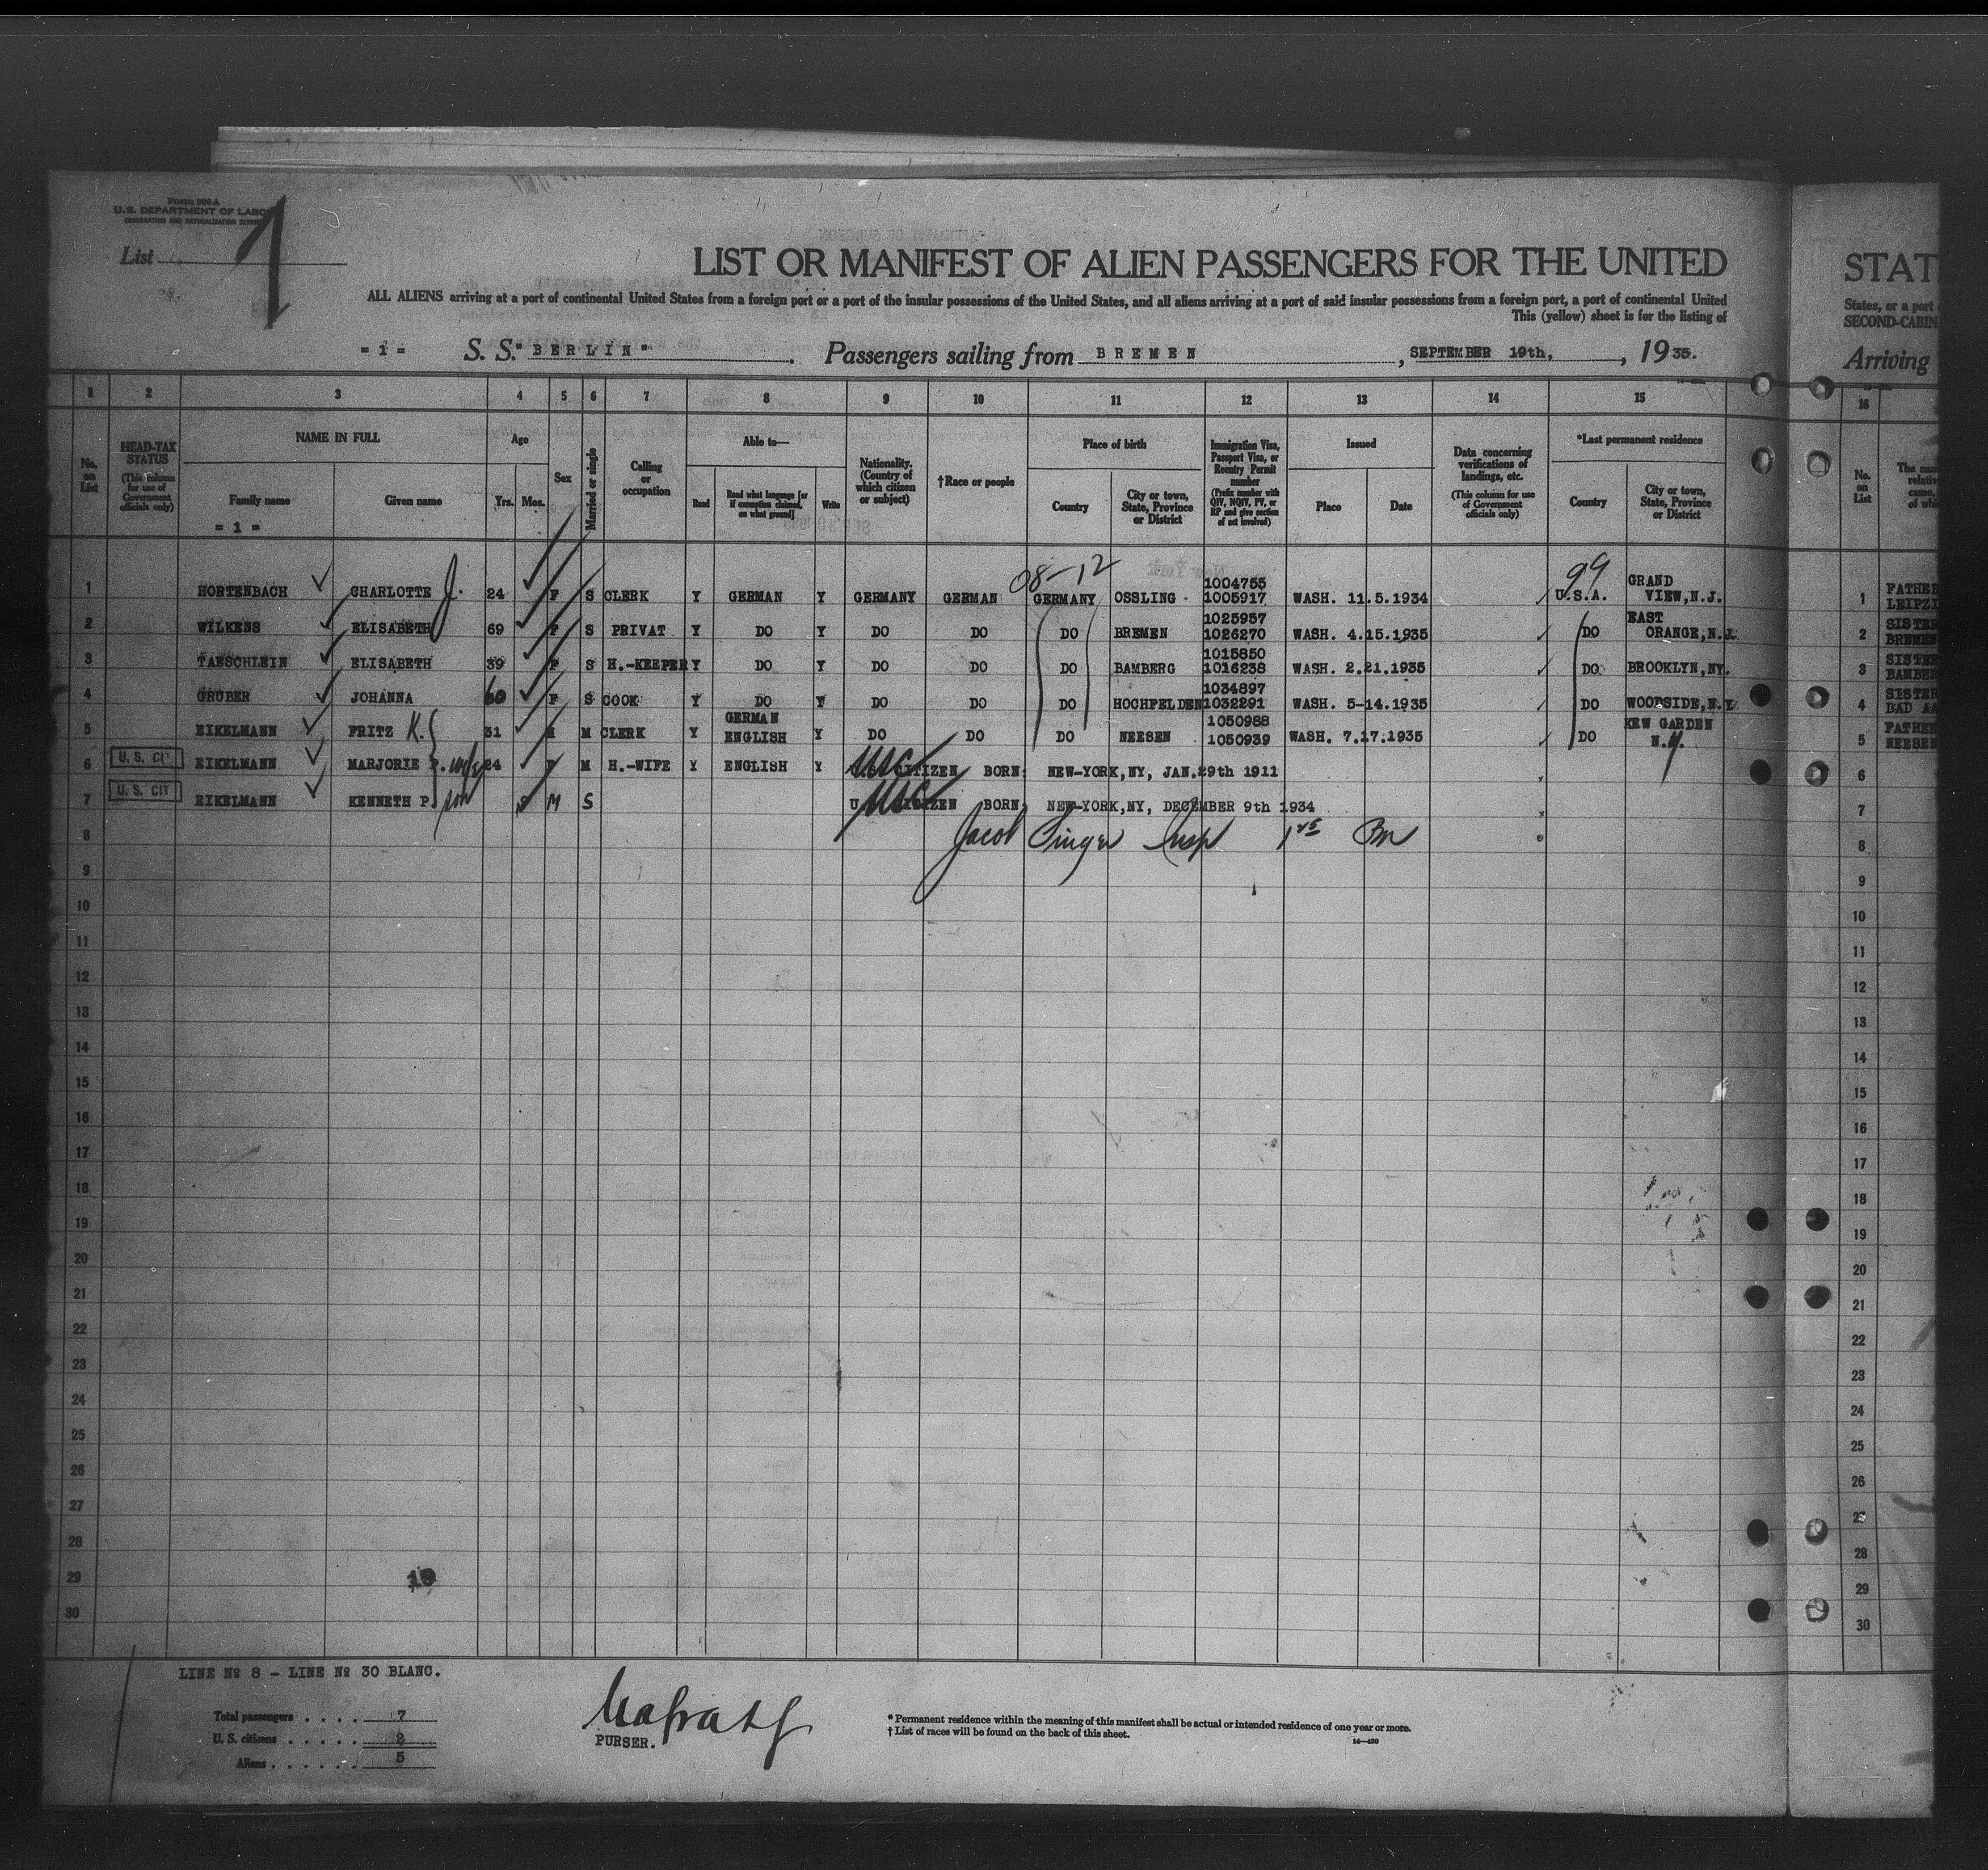 Form 500 A
U.S. DEPARTMENT OF LABOR
IMMIGRATION AND NATURALIZATION SERVICE
List 1
LIST OR MANIFEST OF ALIEN PASSENGERS FOR THE UNITED
STAT
ALL ALIENS arriving at a port of continental United States from a foreign port or a port of the insular possessions of the United States, and all aliens arriving at a port of said insular possessions from a foreign port, a port of continental United
States, or a port
This (yellow) sheet is for the listing of
SECOND-CABIN
= 1 = S. S. "BERLIN". Passengers sailing from BREMEN, SEPTEMBER 19th, 1935.
Arriving
1 2 3 4 5 6 7 8 9 10 11 12 13 14 15 16
No. on List
HEAD-TAX STATUS (This column for use of Government officials only)
NAME IN FULL Family name Given name
= 1 =
Age Yrs. Mos.
Sex
Married or single
Calling or occupation
Able to— Read Read what language [or if exemption claimed, on what ground] Write
Nationality. (Country of which citizen or subject)
†Race or people
Place of birth Country City or town, State, Province or District
Immigration Visa, Passport Visa, or Reentry Permit number (Prefix number with QIV, NQIV, PV, or RP and give section of act involved)
Issued Place Date
Data concerning verifications of landings, etc. (This column for use of Government officials only)
*Last permanent residence Country City or town, State, Province or District
No. on List
08-12 99
1 HORTENBACH CHARLOTTE J. 24 F S CLERK Y GERMAN Y GERMANY GERMAN GERMANY OSSLING 1004755 1005917 WASH. 11.5.1934 U.S.A. GRAND VIEW,N.J. 1 FATHER LEIPZI
2 WILKENS ELISABETH 69 F S PRIVAT Y DO Y DO DO DO BREMEN 1025957 1026270 WASH. 4.15.1935 DO EAST ORANGE,N.J. 2 SISTER BREMEN
3 TAESCHLEIN ELISABETH 39 F S H.-KEEPER Y DO Y DO DO DO BAMBERG 1015850 1016238 WASH. 2.21.1935 DO BROOKLYN,NY. 3 SISTER BAMBER
4 GRUBER JOHANNA 60 F S COOK Y DO Y DO DO DO HOCHFELDEN 1034897 1032291 WASH. 5-14.1935 DO WOODSIDE,N.Y. 4 SISTER BAD AA
5 EIKELMANN FRITZ K. 31 M M CLERK Y GERMAN ENGLISH Y DO DO DO NEESEN 1050988 1050939 WASH. 7.17.1935 DO KEW GARDEN N.Y. 5 FATHER NEESEN
6 U. S. CIT EIKELMANN MARJORIE P. wife 24 F M H.-WIFE Y ENGLISH Y USC CITIZEN BORN, NEW-YORK,NY, JAN.29th 1911 6
7 U. S. CIT EIKELMANN KENNETH P. son M S USC CITIZEN BORN, NEW-YORK,NY, DECEMBER 9th 1934 7
8 Jacob Singer Insp 8
9 9
10 10
11 11
12 12
13 13
14 14
15 15
16 16
17 17
18 18
19 19
20 20
21 21
22 22
23 23
24 24
25 25
26 26
27 27
28 28
29 29
30 30
LINE No 8 - LINE No 30 BLANC.
Total passengers . . . . 7
U. S. citizens . . . . . 2
Aliens . . . . . . 5
PURSER.
* Permanent residence within the meaning of this manifest shall be actual or intended residence of one year or more.
† List of races will be found on the back of this sheet.